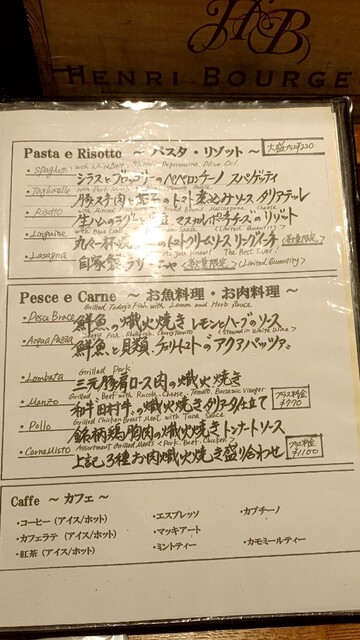 HB
HENRI BOURGE
Pasta e Risotto ~ パスタ・リゾット ~
大盛プラス¥220
・Spaghetti with Whitebait, Broccoli Peperoncino Olive Oil
シラスとブロッコリーのペペロンチーノ スパゲッティ
・Tagliatelle
豚スネ肉と のトマト煮込みソース タリアテッレ
・Risotto
生ハムのラグーと マスカルポーネチーズのリゾット
・Linguine with Blue Crab
のトマトクリームソース リングイネ <数量限定>
・Lasagna As you know! The Best Ever!
自家製ラザーニャ <数量限定> <Limited Quantity>
Pesce e Carne ~ お魚料理・お肉料理 ~
Grilled Today's Fish with Lemon and Herb Sauce
・Pesce Brace 鮮魚の熾火焼き レモンとハーブのソース
Today's Fish, Shellfish, Cherry Tomato (Steamed in White Wine)
・Acqua Pazza 鮮魚と貝類、チェリートマトの"アクアパッツァ"
Grilled Pork
・Lombata 三元豚肩ロース肉の熾火焼き
Grilled Beef with Rucola, Cheese, Tomato, Balsamic Vinegar
・Manzo 和牛 の熾火焼き タリアータ仕立て
プラス料金 ¥770
Grilled Chicken Breast Meat with Tuna Sauce
・Pollo 銘柄鶏胸肉の熾火焼き トンナートソース
Assortment Grilled Meats <Pork, Beef, Chicken>
・Carne Misto 上記3種お肉熾火焼き盛り合わせ
プラス料金 ¥1100
Caffe ~ カフェ ~
・コーヒー (アイス/ホット) ・エスプレッソ ・カプチーノ
・カフェラテ (アイス/ホット) ・マッキアート
・紅茶 (アイス/ホット) ・ミントティー ・カモミールティー